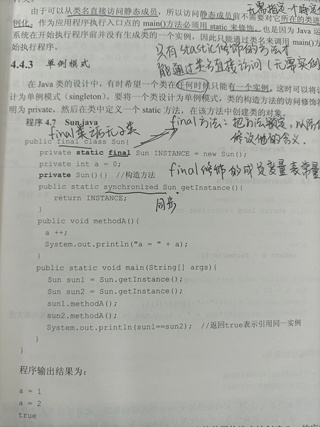 由于可以从类名直接访问静态成员，所以访问静态成员前不需要对它所在的类进
例化。作为应用程序执行入口点的 main()方法必须用 static 来修饰，也是因为 Java 运
系统在开始执行程序前并没有生成类的一个实例，因此只能通过类名来调用 main()方
始执行程序。
只有static修饰的方法才
能通过类名直接访问（无需实例
4.4.3 单例模式
在 Java 类的设计中，有时希望一个类在任何时候只能有一个实例，这时可以将
计为单例模式（singleton）。要将一个类设计为单例模式，类的构造方法的访问修饰
明为 private，然后在类中定义一个 static 方法，在该方法中创建类的对象。
程序 4.7 Sun.java
final类非无子类
final方法：把方法锁定，以防
修改他的含义.
public final class Sun{
private static final Sun INSTANCE = new Sun();
private int a = 0;
final修饰的成员变量表常量
private Sun() {} //构造方法
public static synchronized Sun getInstance(){
同步
return INSTANCE;
}
public void methodA(){
a ++;
System.out.println("a = " + a);
}
public static void main(String[] args){
Sun sun1 = Sun.getInstance();
Sun sun2 = Sun.getInstance();
sun1.methodA();
sun2.methodA();
System.out.println(sun1==sun2); //返回true表示引用同一实例
}
}
程序输出结果为：
a = 1
a = 2
true